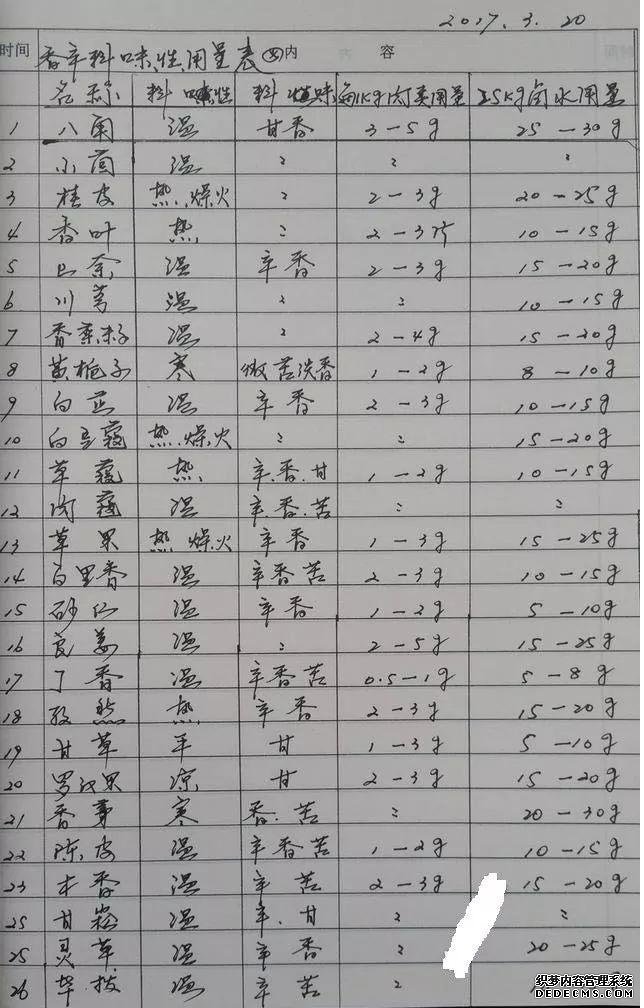 2017.3.20
时间 香辛料味性用量表(四) 内 容
名称 料味性 料性味 每1Kg肉类用量 25Kg卤水用量
1 八角 温 甘香 3-5g 25-30g
2 小茴 温 〃 〃 〃
3 桂皮 热.燥火 〃 2-3g 20-25g
4 香叶 热 〃 2-3片 10-15g
5 山奈 温 辛香 2-3g 15-20g
6 川芎 温 〃 〃 10-15g
7 香菜籽 温 〃 2-4g 15-20g
8 黄栀子 寒 微苦淡香 1-2g 8-10g
9 白芷 温 辛香 2-3g 10-15g
10 白豆蔻 热.燥火 〃 〃 15-20g
11 草蔻 热 辛.香.甘 1-2g 10-15g
12 肉蔻 温 辛香.苦 〃 〃
13 草果 热 燥火 辛香 1-3g 15-25g
14 百里香 温 辛香苦 2-3g 10-15g
15 砂仁 温 辛香 1-2g 5-10g
16 良姜 温 〃 2-5g 15-25g
17 丁香 温 辛香苦 0.5-1g 5-8g
18 孜然 热 辛香 2-3g 15-20g
19 甘草 平 甘 1-3g 5-10g
20 罗汉果 凉 甘 2-3g 15-20g
21 香茅 寒 香.苦 〃 20-30g
22 陈皮 温 辛香苦 1-2g 10-15g
23 木香 温 辛苦 2-3g 15-20g
25 甘崧 温 辛.甘 〃 〃
25 灵草 温 辛香 〃 20-25g
26 荜拨 温 辛苦 〃
织梦内容管理系统
DEDECMS.COM